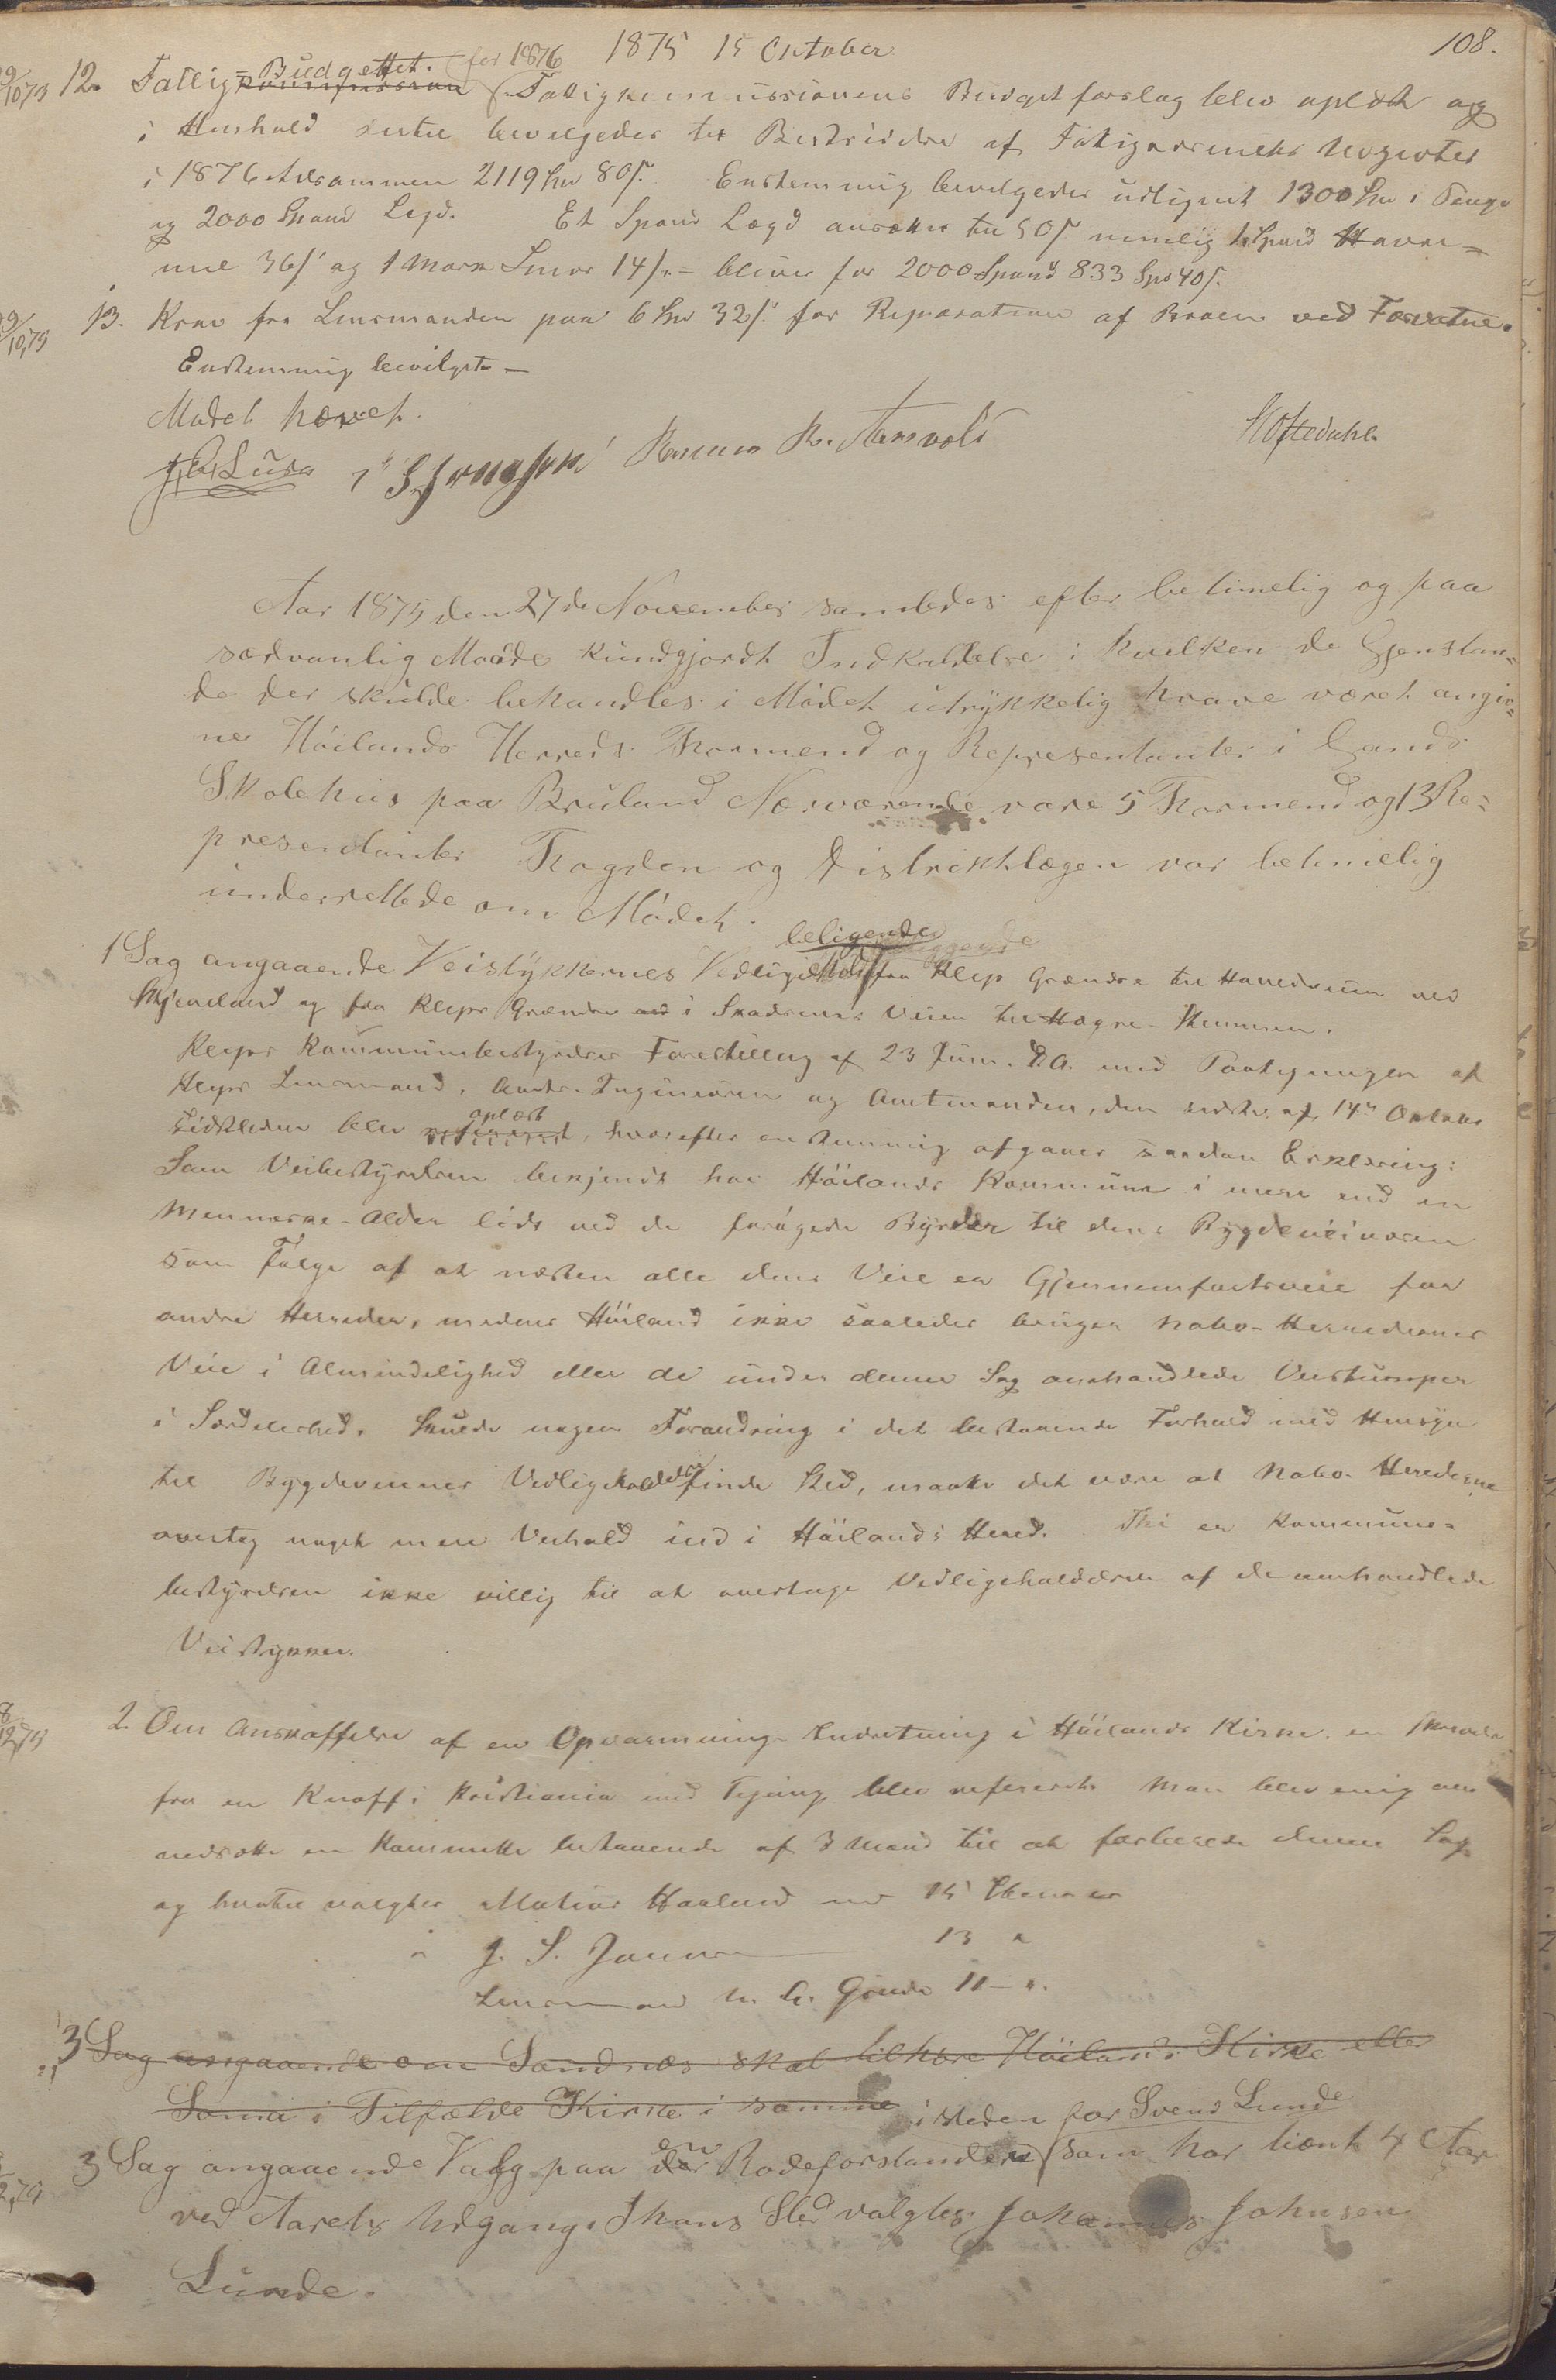 1875 15 October
108.
12. Fattig=Budgettet. for 1876 Fattigkommissionens Budgetforslag blev oplæst og
i Henhold dertil bevilgedes til Bestridelse af Fattigvæsenets Udgivter
i 1876 tilsammen 2119 Spd 80 s. Enstemmig bevilgedes udlignet 1300 Spd i Penge
og 2000 Spand Legd. Et Spand Lægd ansættes til 50 s nemlig 1 Spand Havre=
mel 36 s og 1 Mark Smør 14 s. = bliver for 2000 Spand 833 Spd 40 s.
29/10,75 13. Krav fra Lensmanden paa 6 Spd 32 s. for Reparation af Broen ved Foss
Enstemmig bevilget –
Mødet hævet.
Rasmus R. Aarsvold
Hoftedahl
Aar 1875 den 27de November samledes efter betimelig og paa
sædvanlig Maade kundgjordt Indkaldelse i hvilken de Gjenstan=
de der skulde behandles i Mödet utrykkelig havve været angiv=
ne Höilands Herreds Formend og Repræsentanter i Gands
Skolehus paa Brueland Nærværende vare 5 Formend og 13 Re=
presentanter Fogden og Distriktslægen var betimelig
underrettede om Mödet.
1 Sag angaaende Veistykkernes Vedligeholdelse beligende fra Klep Grændse til Hovedveien ved
Skjæveland og fra Kleps Grændse i Veien til Hogre-
Kleps Kommunebestyrelses Forestilling af 23 Juni d. A. med Paategninger af
Kleps Lensmand, Amts-Ingeniøren og Amtmanden, den sidste af 14de October
sidstleden blev oplæst, hvorefter enstemmig afgaves saadan Erklæring:
Som Veibestyrelsen bekjendt har Höilands Kommune i mere end en
Menneske-Alder lidt ved de forögede Byrder til dens Bygdeveivæsen
som Fölge af at næsten alle dens Veie er Gjennemfartsveie for
andre Herreder, medens Höiland ikke saaledes bruger Nabo-Herredernes
Veie i Almindelighed eller de under denne Sag omhandlede Veistumper
i Særdeleshed. Skulde nogen Forandring i det bestaaende Forhold med Hensyn
til Bygdeveienes Vedligeholdelse finde Sted, maatte det være at Nabo-Herrederne
overtog noget mere Veihold ind i Höilands Herred. Thi er Kommune=
bestyrelsen ikke villig til at overtage Vedligeholdelsen af de omhandlede
Veistykker.
8/12,75 2. Om Anskaffelse af en Opvarmnings Indretning i Höilands Kirke. en Skrivelse
fra en Knoff i Kristiania med Tegning blev refereret. Man blev enig om
nedsætte en Kommitte bestaaende af 3 Mand til at forberede denne Sag
og hvortil valgtes Matias Haaland med 15 Stemmer
J. S. Jonsen 13 "
Lensmand M. A. Grude 11 – ".
3 Sag angaaende om Sandnæs skal tilhøre Höilands Kirke eller
Soma i Tilfælde Kirke i samme
3 Sag angaaende Valg paa en Rodeforstander i steden for Svend Lunde som har tient 4 Aar
ved Aarets Udgang. I hans Sted valgtes Johannes Johnsen
Lunde.